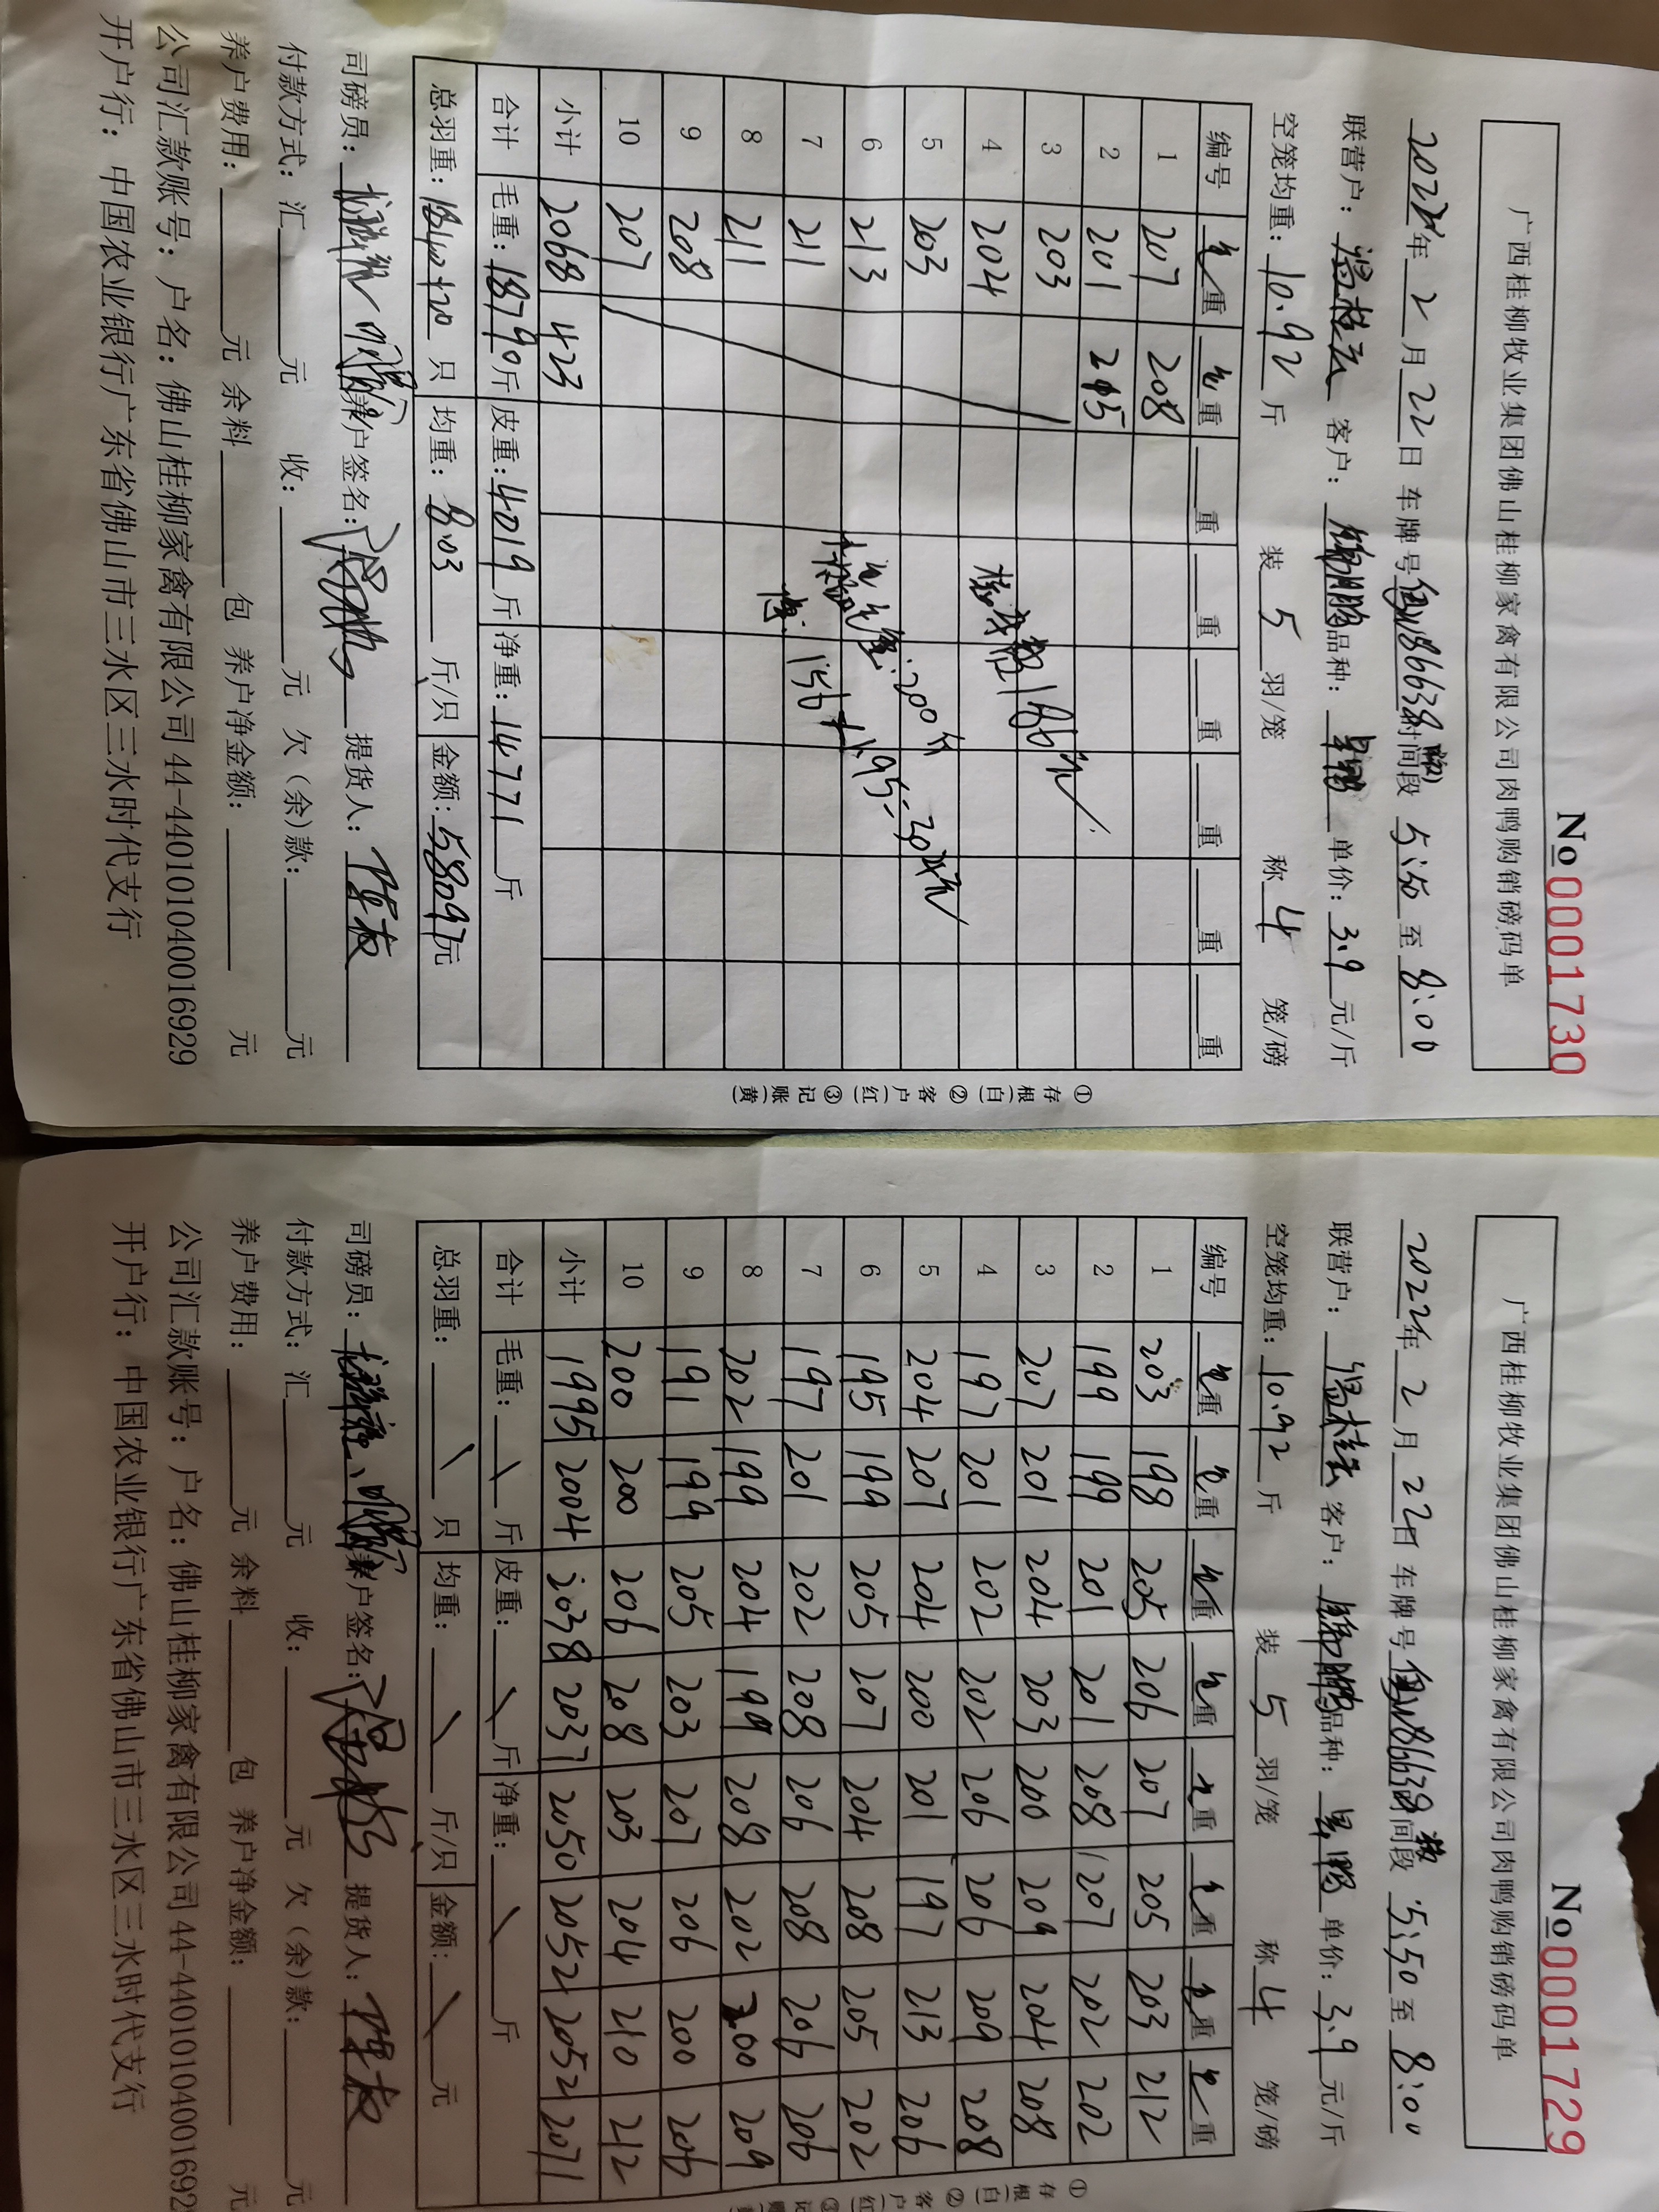 No 0001730
广西桂柳牧业集团佛山桂柳家禽有限公司肉鸭购销磅码单
2022年 2 月 22 日 车牌号 时间段 至 8:00
联营户: 客户: 品种: 单价: 3.9 元/斤
空笼均重: 10.92 斤 装 5 羽/笼 称 4 笼/磅
编号 毛重 毛重 重 重 重 重 重 重
1 207 208
2 201 215
3 203
4 204
5 203
6 213
7 211
8 211
9 208
10 207
小计 2068 423
合计 毛重: 18790 斤 皮重: 4019 斤 净重: 14771 斤
总羽重: 只 均重: 8.03 斤/只 金额: 元
司磅员: 养户签名: 提货人:
付款方式: 汇 元 收: 元 欠(余)款: 元
养户费用: 元 余料 包 养户净金额: 元
公司汇款账号: 户名: 佛山桂柳家禽有限公司 44-440101040016929
开户行: 中国农业银行广东省佛山市三水区三水时代支行
①存根(白) ②客户(红) ③记账(黄)
No 0001729
广西桂柳牧业集团佛山桂柳家禽有限公司肉鸭购销磅码单
2022年 2 月 22日 车牌号 时间段 5:50 至 8:00
联营户: 客户: 品种: 单价: 3.9 元/斤
空笼均重: 10.92 斤 装 5 羽/笼 称 4 笼/磅
编号 毛重 毛重 毛重 毛重 毛重 毛重 毛重 毛重
1 203 198 205 206 207 205 203 212
2 199 199 201 201 208 207 202 202
3 207 201 204 203 200 209 204 208
4 197 201 202 202 206 206 209 208
5 204 207 204 200 201 197 213 206
6 195 199 205 207 204 208 205 202
7 197 201 202 208 206 208 206 206
8 202 199 204 199 208 202 200 209
9 191 199 205 203 207 206 200 206
10 200 200 206 208 203 204 210 212
小计 1995 2004 2038 2037 2050 2052 2052 2071
合计 毛重: 斤 皮重: 斤 净重: 斤
总羽重: 只 均重: 斤/只 金额: 元
司磅员: 养户签名: 提货人:
付款方式: 汇 元 收: 元 欠(余)款: 元
养户费用: 元 余料 包 养户净金额: 元
公司汇款账号: 户名: 佛山桂柳家禽有限公司 44-44010104001692
开户行: 中国农业银行广东省佛山市三水区三水时代支行
①存根(白) ②客户(红) ③记